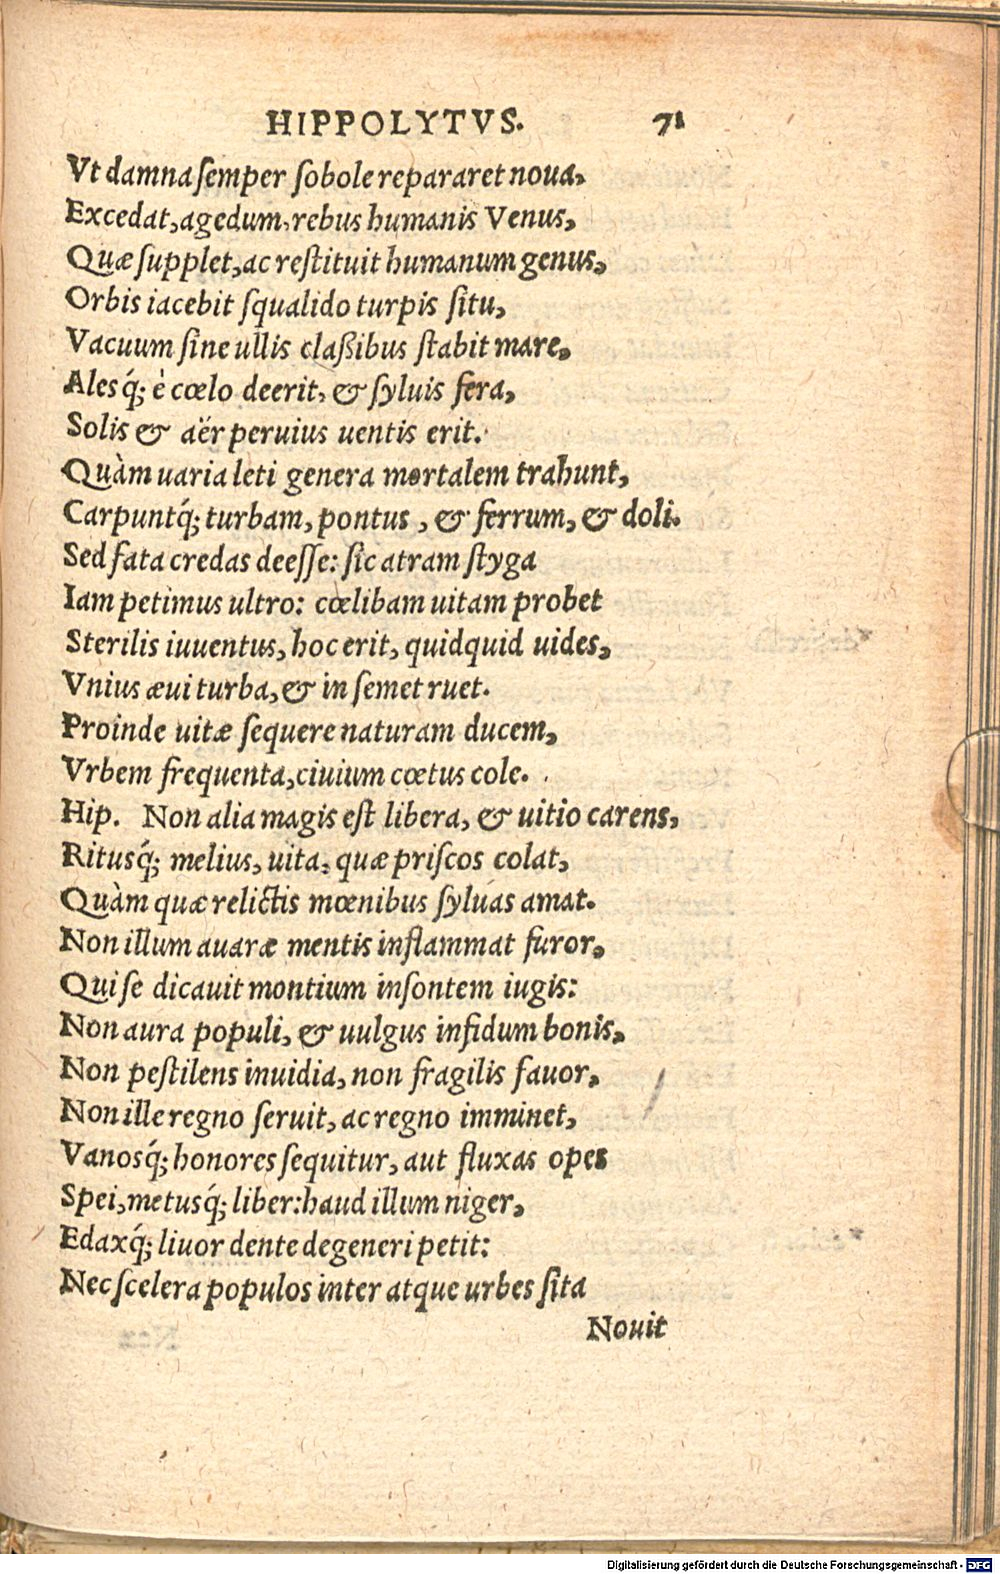 HIPPOLYTVS. 71
Vt damna semper sobole repararet noua,
Excedat, agedum, rebus humanis Venus,
Quæ supplet, ac restituit humanum genus,
Orbis iacebit squalido turpis situ,
Vacuum sine ullis claßibus stabit mare,
Alesq́; è cœlo deerit, & syluis fera,
Solis & aër peruius uentis erit.
Quàm uaria leti genera mortalem trahunt,
Carpuntq́; turbam, pontus, & ferrum, & doli.
Sed fata credas deesse: sic atram styga
Iam petimus ultro: cœlibam uitam probet
Sterilis iuuentus, hoc erit, quidquid uides,
Vnius æui turba, & in semet ruet.
Proinde uitæ sequere naturam ducem,
Vrbem frequenta, ciuium cœtus cole.
Hip. Non alia magis est libera, & uitio carens,
Ritusq́; melius, uita, quæ priscos colat,
Quàm quæ relictis mœnibus syluas amat.
Non illum auaræ mentis inflammat furor,
Qui se dicauit montium insontem iugis:
Non aura populi, & uulgus infidum bonis,
Non pestilens inuidia, non fragilis fauor,
Non ille regno seruit, ac regno imminet,
Vanosq́; honores sequitur, aut fluxas opes
Spei, metusq́; liber: haud illum niger,
Edaxq́; liuor dente degeneri petit:
Nec scelera populos inter atque urbes sita
Nouit
Digitalisierung gefördert durch die Deutsche Forschungsgemeinschaft - DFG